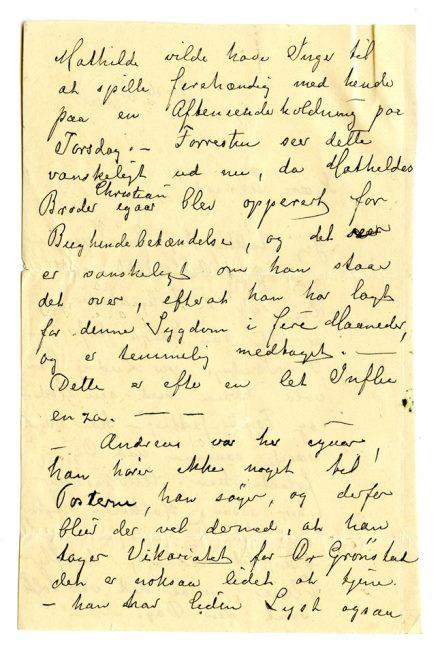 Mathilde vilde have Inger til
at spille firehændig med hende
paa en Aftenunderholdning paa
Torsdag. – Forresten ser dette
vanskeligt ud nu, da Mathildes
Broder Christian igaar blev opperert for
Bughindebetændelse, og det
er vanskeligt om han staar
det over, efterat han har lagt
for denne Sygdom i fire Maaneder,
og er temmelig medtaget. —
Dette er efter en let Influ
enza. — —
— Andreas var her igaar,
han hører ikke noget til
Posterne, han søger, og derfor
blir der vel dermed, at han
tager Vikariatet for Dr Grønstad
den er noksaa lidet at tjene.
– han har liden Lyst ogsaa